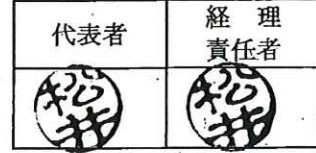 代表者
経理
責任者
松井
松井